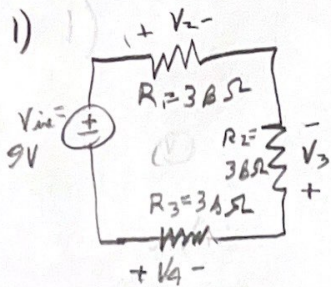 1)
+ V₂ -
R₁=36Ω
Vin=
9V
+
-
R₂=
36Ω
-
V₃
+
R₃=36Ω
+ V₄ -